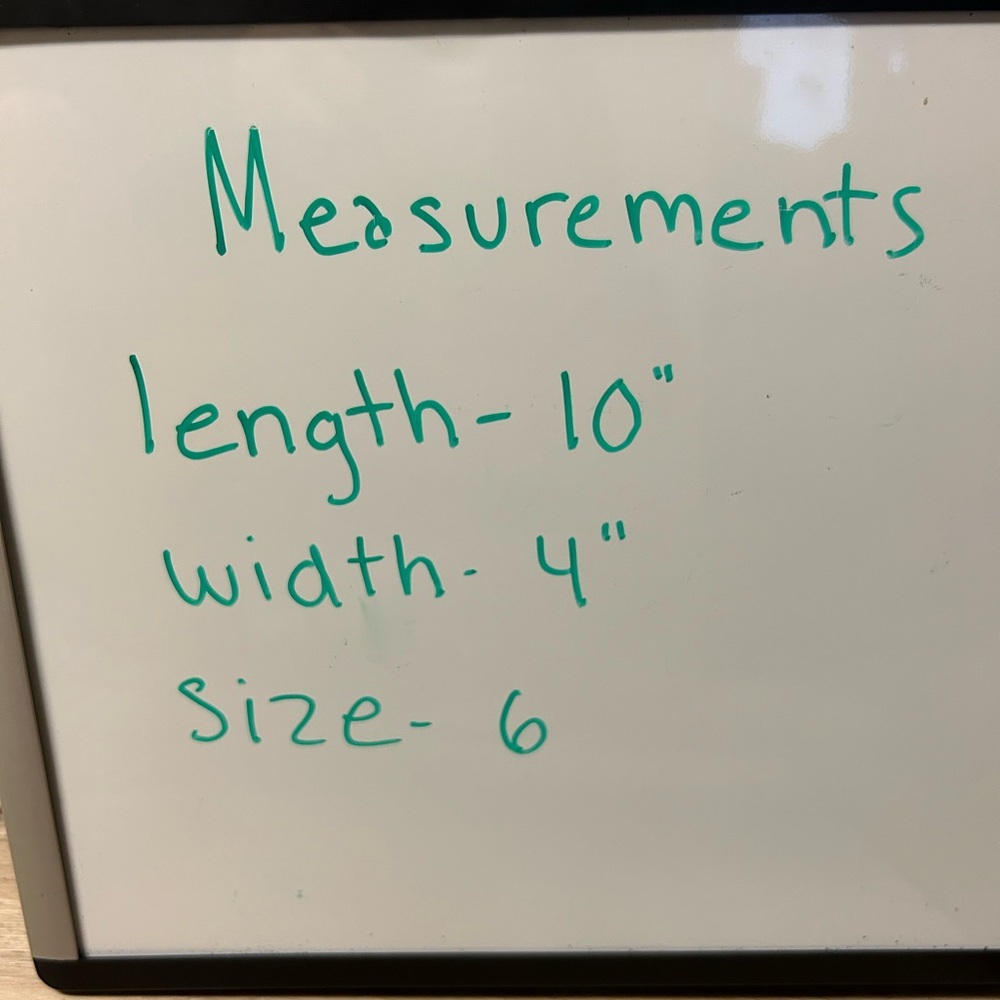 Measurements
length- 10"
width- 4"
Size- 6